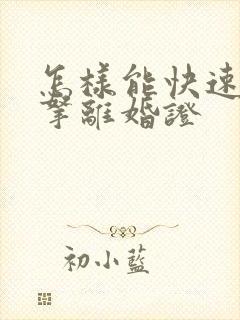 怎樣能快速
拏離婚證
初小藍